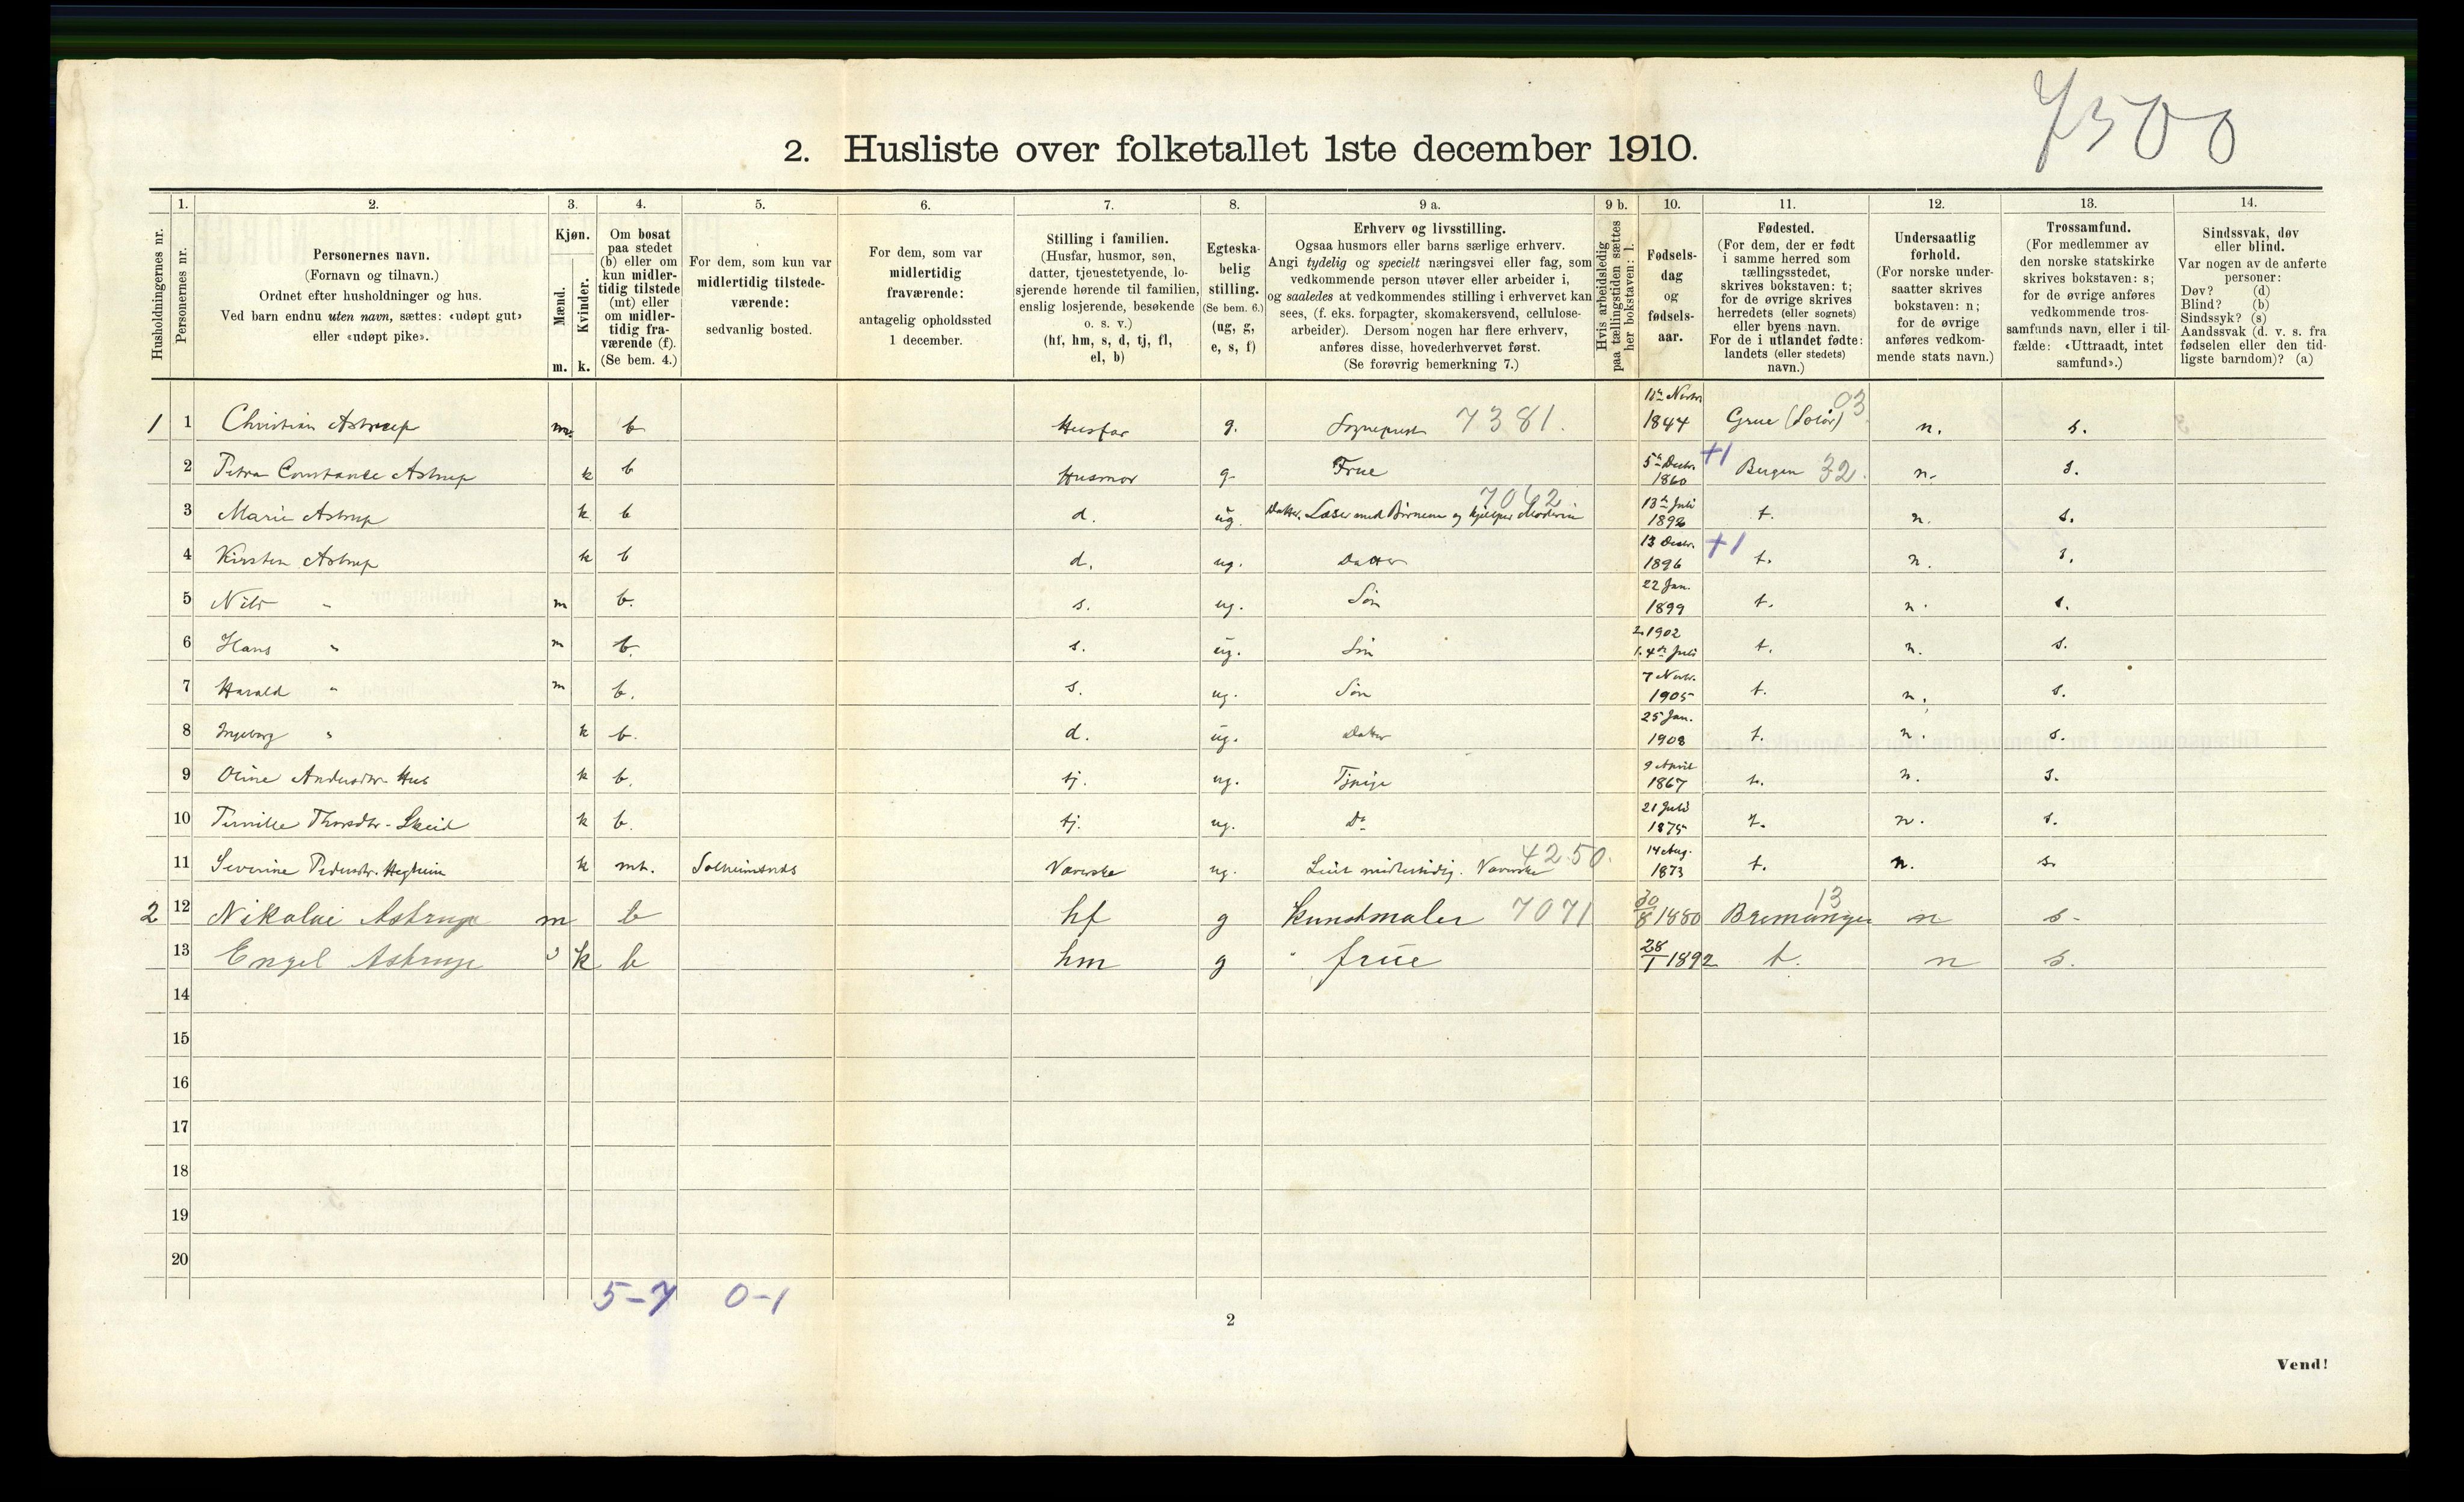 7500
2. Husliste over folketallet 1ste december 1910.
1. 2. 3. 4. 5. 6. 7. 8. 9 a. 9 b. 10. 11. 12. 13. 14.
Husholdningernes nr.
Personernes nr.
Personernes navn.
(Fornavn og tilnavn.)
Ordnet efter husholdninger og hus.
Ved barn endnu uten navn, sættes: «udøpt gut»
eller «udøpt pike».
Kjøn.
Mænd.
Kvinder.
m. k.
Om bosat
paa stedet
(b) eller om
kun midler-
tidig tilstede
(mt) eller
om midler-
tidig fra-
værende (f).
(Se bem. 4.)
For dem, som kun var
midlertidig tilstede-
værende:
sedvanlig bosted.
For dem, som var
midlertidig
fraværende:
antagelig opholdssted
1 december.
Stilling i familien.
(Husfar, husmor, søn,
datter, tjenestetyende, lo-
sjerende hørende til familien,
enslig losjerende, besøkende
o. s. v.)
(hf, hm, s, d, tj, fl,
el, b)
Egteska-
belig
stilling.
(Se bem. 6.)
(ug, g,
e, s, f)
Erhverv og livsstilling.
Ogsaa husmors eller barns særlige erhverv.
Angi tydelig og specielt næringsvei eller fag, som
vedkommende person utøver eller arbeider i,
og saaledes at vedkommendes stilling i erhvervet kan
sees, (f. eks. forpagter, skomakersvend, cellulose-
arbeider). Dersom nogen har flere erhverv,
anføres disse, hovederhvervet først.
(Se forøvrig bemerkning 7.)
Hvis arbeidsledig
paa tællingstiden sættes
her bokstaven: l.
Fødsels-
dag
og
fødsels-
aar.
Fødested.
(For dem, der er født
i samme herred som
tællingsstedet,
skrives bokstaven: t;
for de øvrige skrives
herredets (eller sognets)
eller byens navn.
For de i utlandet fødte:
landets (eller stedets)
navn.)
Undersaatlig
forhold.
(For norske under-
saatter skrives
bokstaven: n;
for de øvrige
anføres vedkom-
mende stats navn.)
Trossamfund.
(For medlemmer av
den norske statskirke
skrives bokstaven: s;
for de øvrige anføres
vedkommende tros-
samfunds navn, eller i til-
fælde: «Uttraadt, intet
samfund».)
Sindssvak, døv
eller blind.
Var nogen av de anførte
personer:
Døv? (d)
Blind? (b)
Sindssyk? (s)
Aandssvak (d. v. s. fra
fødselen eller den tid-
ligste barndom)? (a)
1 1 Christian Astrup m. b Husfar g. Sogneprest 7381. 1844 Grue (Solør) 03 n. s.
2 Petra Constance Astrup k b Husmor g. Frue 5te Decbr. 1860 +1 Bergen 32. n. s.
3 Marie Astrup k b d. ug. Datter. Læser med Børnene og hjelper Moderen 7042. 13de Juli 1892 t. n. s.
4 Kirsten Astrup k b d. ug. Datter 13 Decbr. 1896 +1 t. n. s.
5 Nils " m b. s. ug. Søn 22 Jan. 1899 t. n. s.
6 Hans " m b. s. ug. Søn 2. 1902 1. 4de Juli t. n. s.
7 Harald " m b. s. ug. Søn 7 Novbr. 1905 t. n. s.
8 Ingeborg " k b. d. ug. Datter 25 Jan. 1908 t. n. s.
9 Oline Andersdtr. Hus k b. tj. ug. Tjpige 9 April 1867 t. n. s.
10 Pernille Thorsdtr. Skeid k b. tj. ug. Do 21 Juli 1875 t. n. s.
11 Severine Pedersdtr. Hegheim k mt. Solheimsnds Næverske ug. midlertidig. Væverske 4250. 14 Aug. 1873 t. n. s.
2 12 Nikolai Astrup m b hf g Kunstmaler 7071 30/8 1880 Bremanger 13 n s.
13 Engel Astrup k b hm g frue 28/1 1892 t. n s.
14
15
16
17
18
19
20
5-7 0-1
2
Vend!